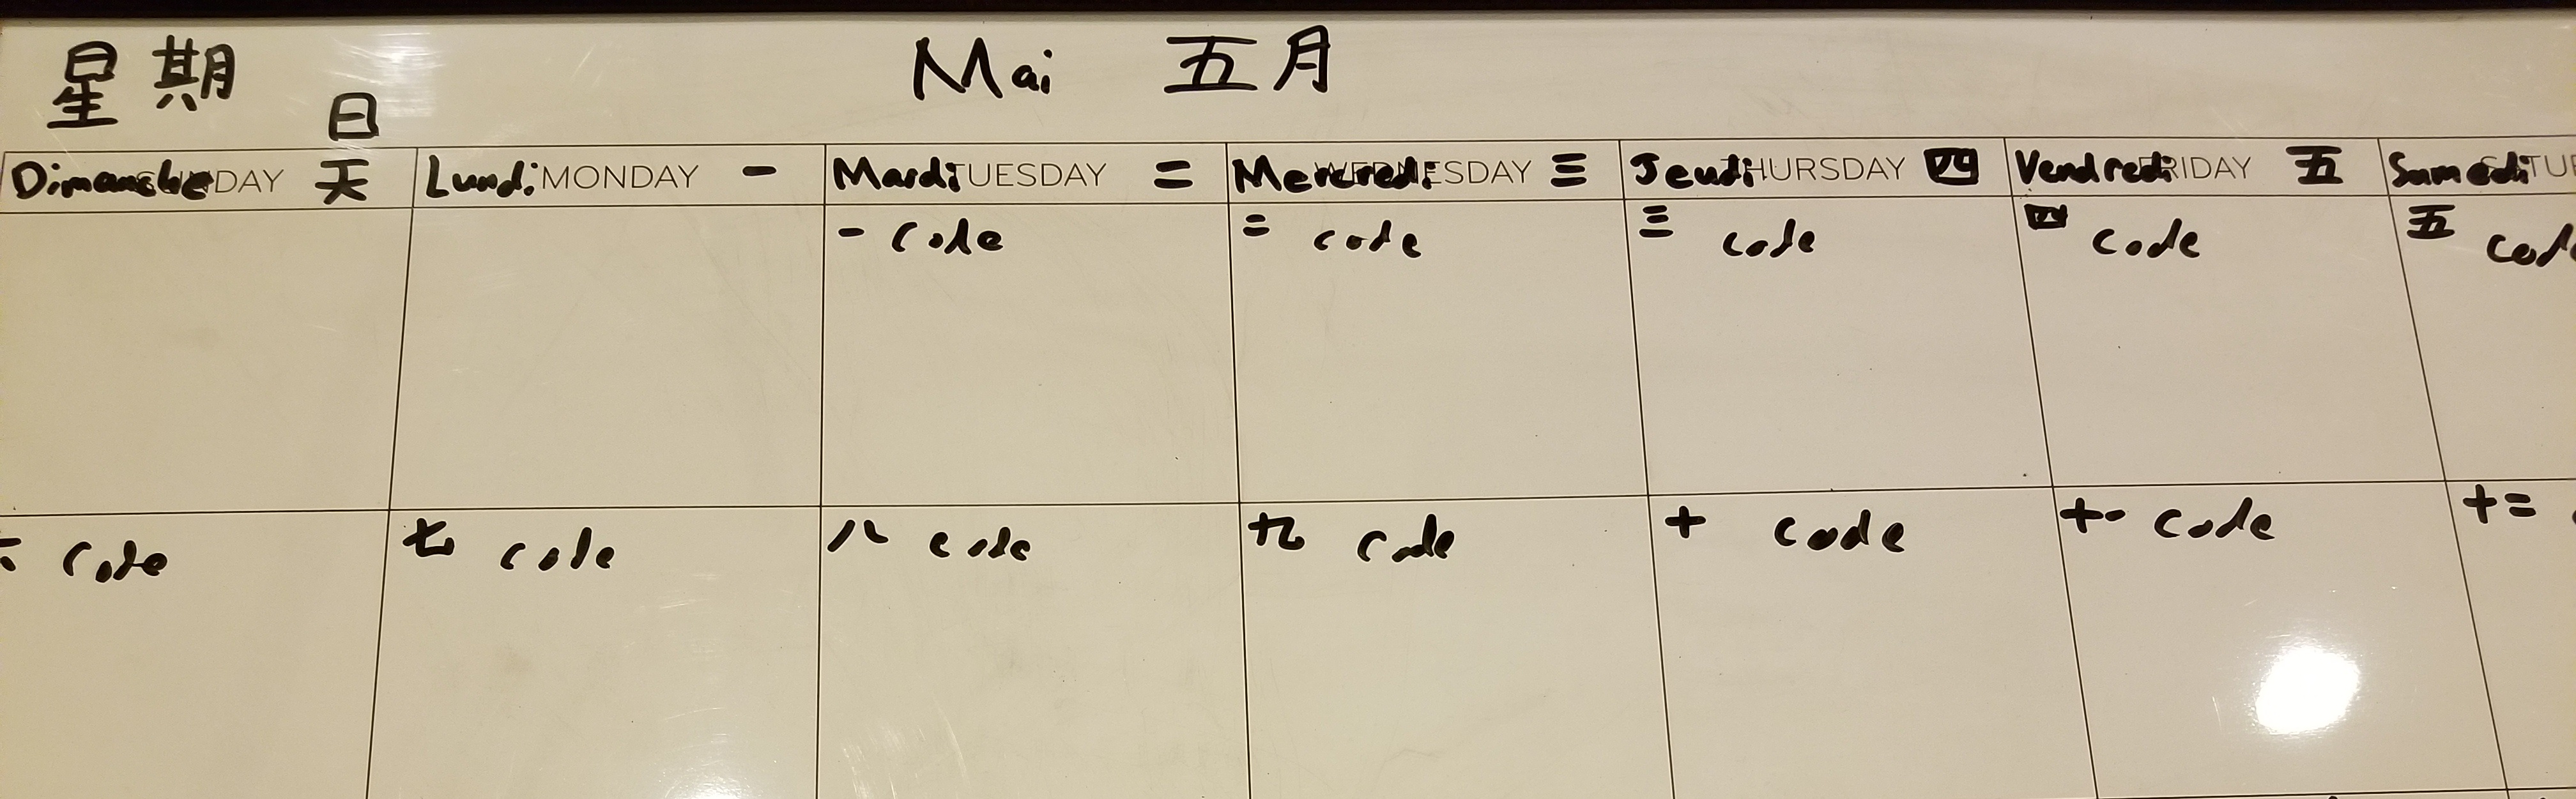 星期 Mai 五月
日
Dimanche DAY 天 Lundi MONDAY 一 Mardi TUESDAY 二 Mercredi WEDNESDAY 三 Jeudi THURSDAY 四 Vendredi FRIDAY 五 Samedi
一 code 二 code 三 code 四 code 五 code
六 code 七 code 八 code 九 code 十 code 十一 code 十二